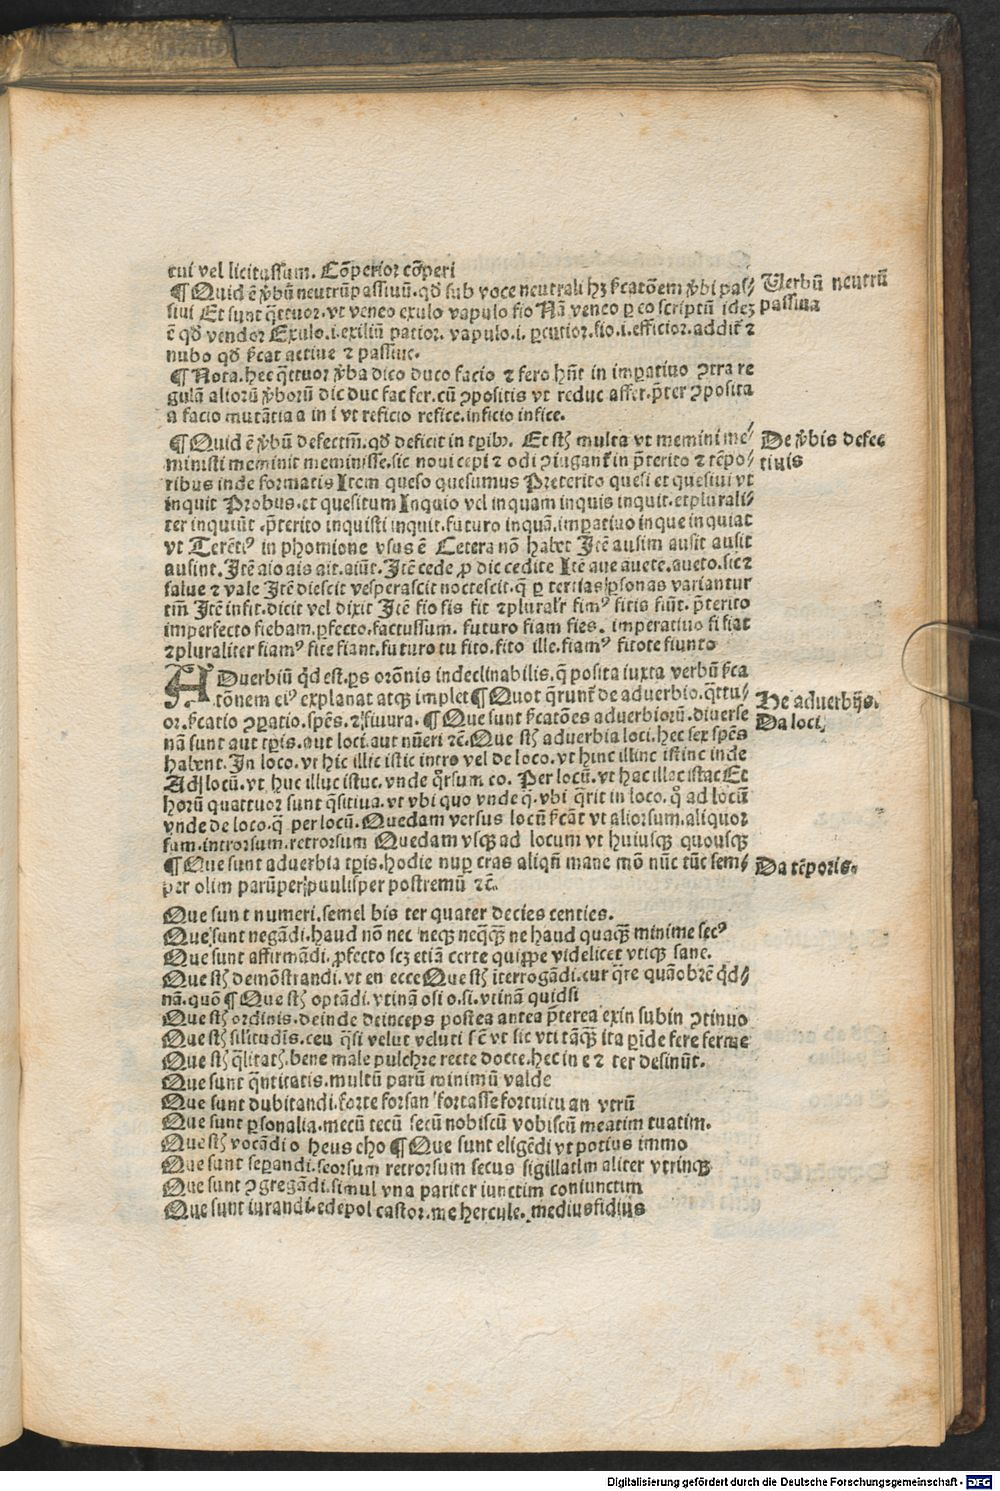 cui vel licitussum. Cōperior cōperi
¶ Quid ē ꝟbū neutrūpassiuū. qđ sub voce neutrali hꝫ ẜcatōem ꝟbi pas⸗
siui Et sunt q̄ttuor. vt veneo exulo vapulo fio Nā veneo ꝑ eo scriptū idez
ē qđ vendor Exulo. i. exiliū patior. vapulo. i. ꝑcutior. fio. i. efficior. addit̄ ⁊
nubo qđ ẜcat actiue ⁊ passiue.
¶ Nota. hec q̄ttuor ꝟba dico duco facio ⁊ fero hn̄t in imꝑatiuo ꝯtra re
gulā aliorū ꝟborū dic duc fac fer. cū ꝯpositis vt reduc affer. p̄ter ꝯposita
a facio mutātia a in i vt reficio refice. inficio infice.
¶ Quid ē ꝟbū defectiū. qđ deficit in tꝑibꝰ. Et st̄ multa vt memini me⸗
ministi meminit meminisse. sic noui cepi ⁊ odi ꝯiugant̄ in p̄terito ⁊ tēpo⸗
ribus inde formatis Item queso quesumus Preterito quesi et quesiui vt
inquit Probus. et quesitum Inquio vel inquam inquis inquit. et plurali⸗
ter inquiūt p̄terito inquisti inquit. futuro inquā. imꝑatiuo inque inquiat
vt Terētiꝰ in phomione vsus ē Cetera nō habet Itē ausim ausit ausit
ausint. Itē aio ais ait. aiūt. Itē cede ꝓ dic cedite Itē aue auete. aueto. sic ⁊
salue ⁊ vale Itē diescit vesperascit noctescit. q̄ ꝑ tertias ꝑsonas variantur
tm̄ Itē infit. dicit vel dixit Itē fio fis fit ⁊ pluralr̄ fimꝰ fitis fiūt. p̄terito
imperfecto fiebam. ꝑfecto. factussum. futuro fiam fies. imperatiuo fi fiat
⁊ pluraliter fiamꝰ fite fiant. futuro tu fito. fito ille. fiamꝰ fitote fiunto
ADuerbiū qđ est. ꝑs orōnis indeclinabilis. q̄ posita iuxta verbū ẜca
tōnem eiꝰ explanat atqꝫ implet ¶ Quot q̄runt̄ de aduerbio. q̄ttu⸗
or. ẜcatio ꝯꝑatio. spēs. ⁊ figura. ¶ Que sunt ẜcatōes aduerbiorū. diuerse
nā sunt aut tꝑis. aut loci. aut nūeri ⁊c̄. Que st̄ aduerbia loci. hec sex spēs
habent. In loco. vt hic illic istic intro vel de loco. vt hinc illinc istinc inde
Ad locū. vt huc illuc istuc. vnde q̊rsum eo. Per locū. vt hac illac istac Et
horū quattuor sunt q̄sitiua. vt vbi quo vnde q̄. vbi q̄rit in loco. q̊ ad locū
vnde de loco. q̄ per locū. Quedam versus locū ẜcāt vt aliorsum. aliquor
sum. introrsum. retrorsum Quedam vsqꝫ ad locum vt huiusqꝫ quousqꝫ
¶ Que sunt aduerbia tꝑis. hodie nuꝑ cras aliqn̄ mane mō nūc tūc sem⸗
per olim parūper paulisper postremū ⁊c̄.
Que sunt numeri. semel bis ter quater decies centies.
Que sunt negādi. haud nō nec neqꝫ neq̄qꝫ ne haud quaqꝫ minime secꝰ
Que sunt affirmādi. ꝓfecto scꝫ etiā certe quippe videlicet vtiqꝫ sane.
Que st̄ demōstrandi. vt en ecce Que st̄ īterrogādi. cur q̄re quāobrē qđ⸗
nā. quō ¶ Que st̄ optādi. vtinā osi o. si. vtinā quidsi
Que st̄ ordinis. deinde deinceps postea antea p̄terea exin subin ꝯtinuo
Que st̄ silitudīs. ceu q̄si velut veluti sēt vt sic vti tāqꝫ ita ꝑīde fere ferme
Que st̄ q̄litatꝭ. bene male pulchre recte docte. hec in e ⁊ ter desinūt.
Que sunt q̄ntitatis. multū parū minimū valde
Que sunt dubitandi. forte forsan fortasse fortuitu an vtrū
Que sunt ꝑsonalia. mecū tecū secū nobiscū vobiscū meatim tuatim.
Que st̄ vocādi o heus eho ¶ Que sunt eligēdi vt potius immo
Que sunt seꝑandi. seorsum retrorsum secus sigillatim aliter vtrinqꝫ
Que sunt ꝯgregādi. simul vna pariter iunctim coniunctim
Que sunt iurandi. edepol castor. me hercule. mediusfidius
Verbū neutrū
passiua
De ꝟbis defec
tiuis
De aduerbijs.
Da loci,
Da tēporis.
Digitalisierung gefördert durch die Deutsche Forschungsgemeinschaft - DFG